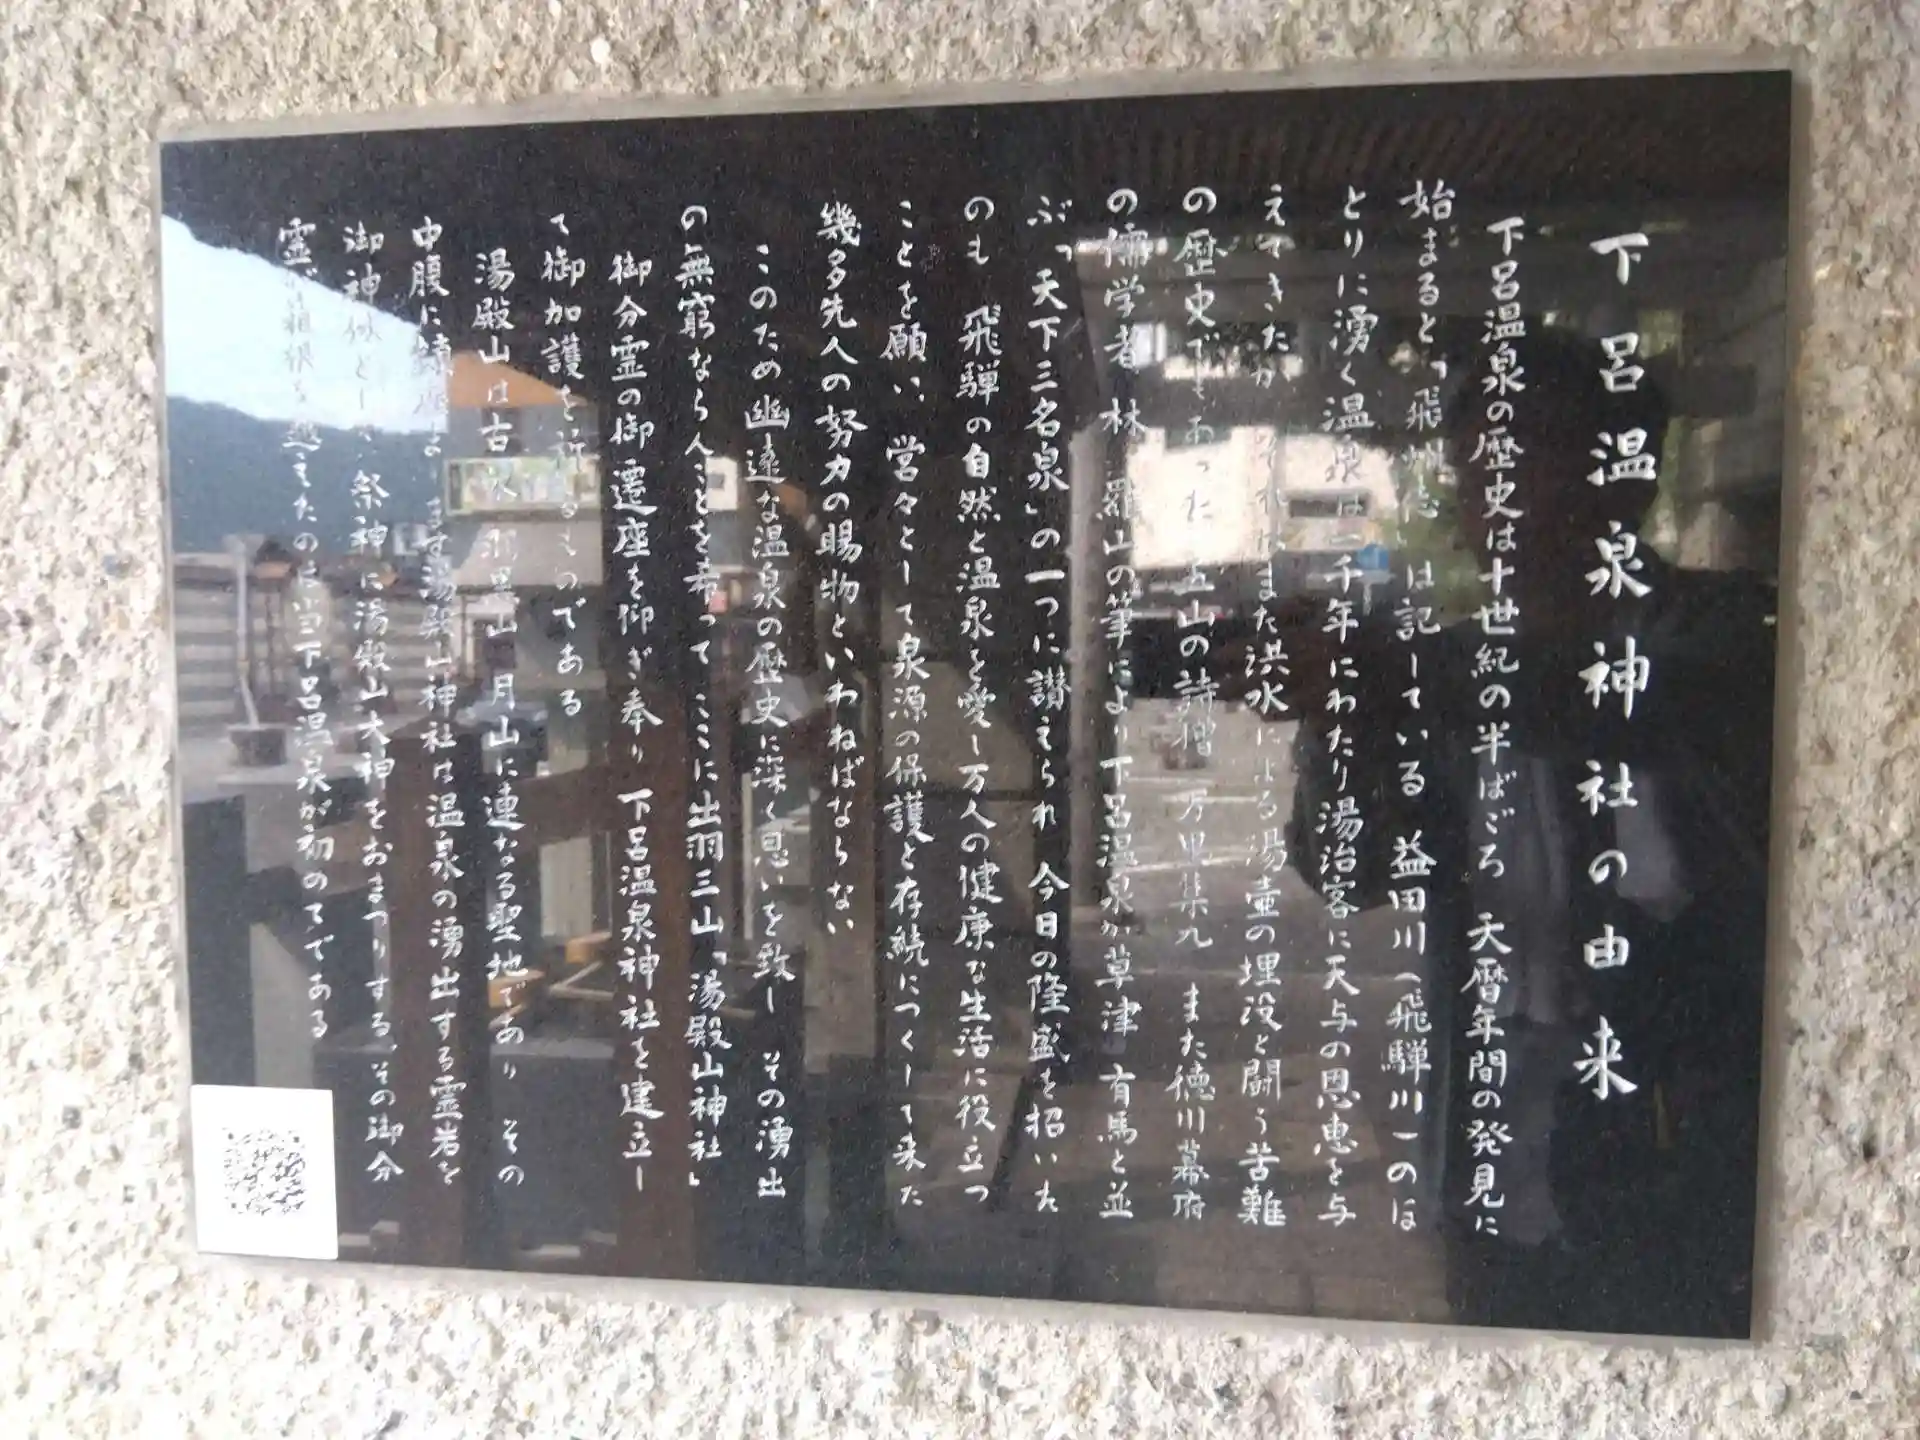 下呂温泉神社の由来
下呂温泉の歴史は十世紀の半ばごろ 天暦年間の発見に
始まると「飛州志」は記している 益田川(飛騨川)のほ
とりに湧く温泉は一千年にわたり湯治客に天与の恩恵を与
えてきたが それはまた洪水による湯壷の埋没と闘う苦難
の歴史でもあった 五山の詩僧 万里集九 また徳川幕府
の儒学者 林 羅山の筆により下呂温泉が草津 有馬と並
ぶ「天下三名泉」の一つに讃えられ 今日の隆盛を招いた
のも 飛騨の自然と温泉を愛し万人の健康な生活に役立つ
ことを願い、営々として泉源の保護と存続につくして来た
幾多先人の努力の賜物といわねばならない
このため幽遠な温泉の歴史に深く思いを致し その湧出
の無窮ならんことを希って ここに出羽三山「湯殿山神社」
御分霊の御遷座を仰ぎ奉り 下呂温泉神社を建立し
て御加護を祈るものである
湯殿山は古来 羽黒山 月山に連なる聖地であり その
中腹に鎮座まします湯殿山神社は温泉の湧出する霊岩を
御神体とし 祭神に湯殿山大神をおまつりする、その御分
霊が箱根を越えたのは当下呂温泉が初めてである